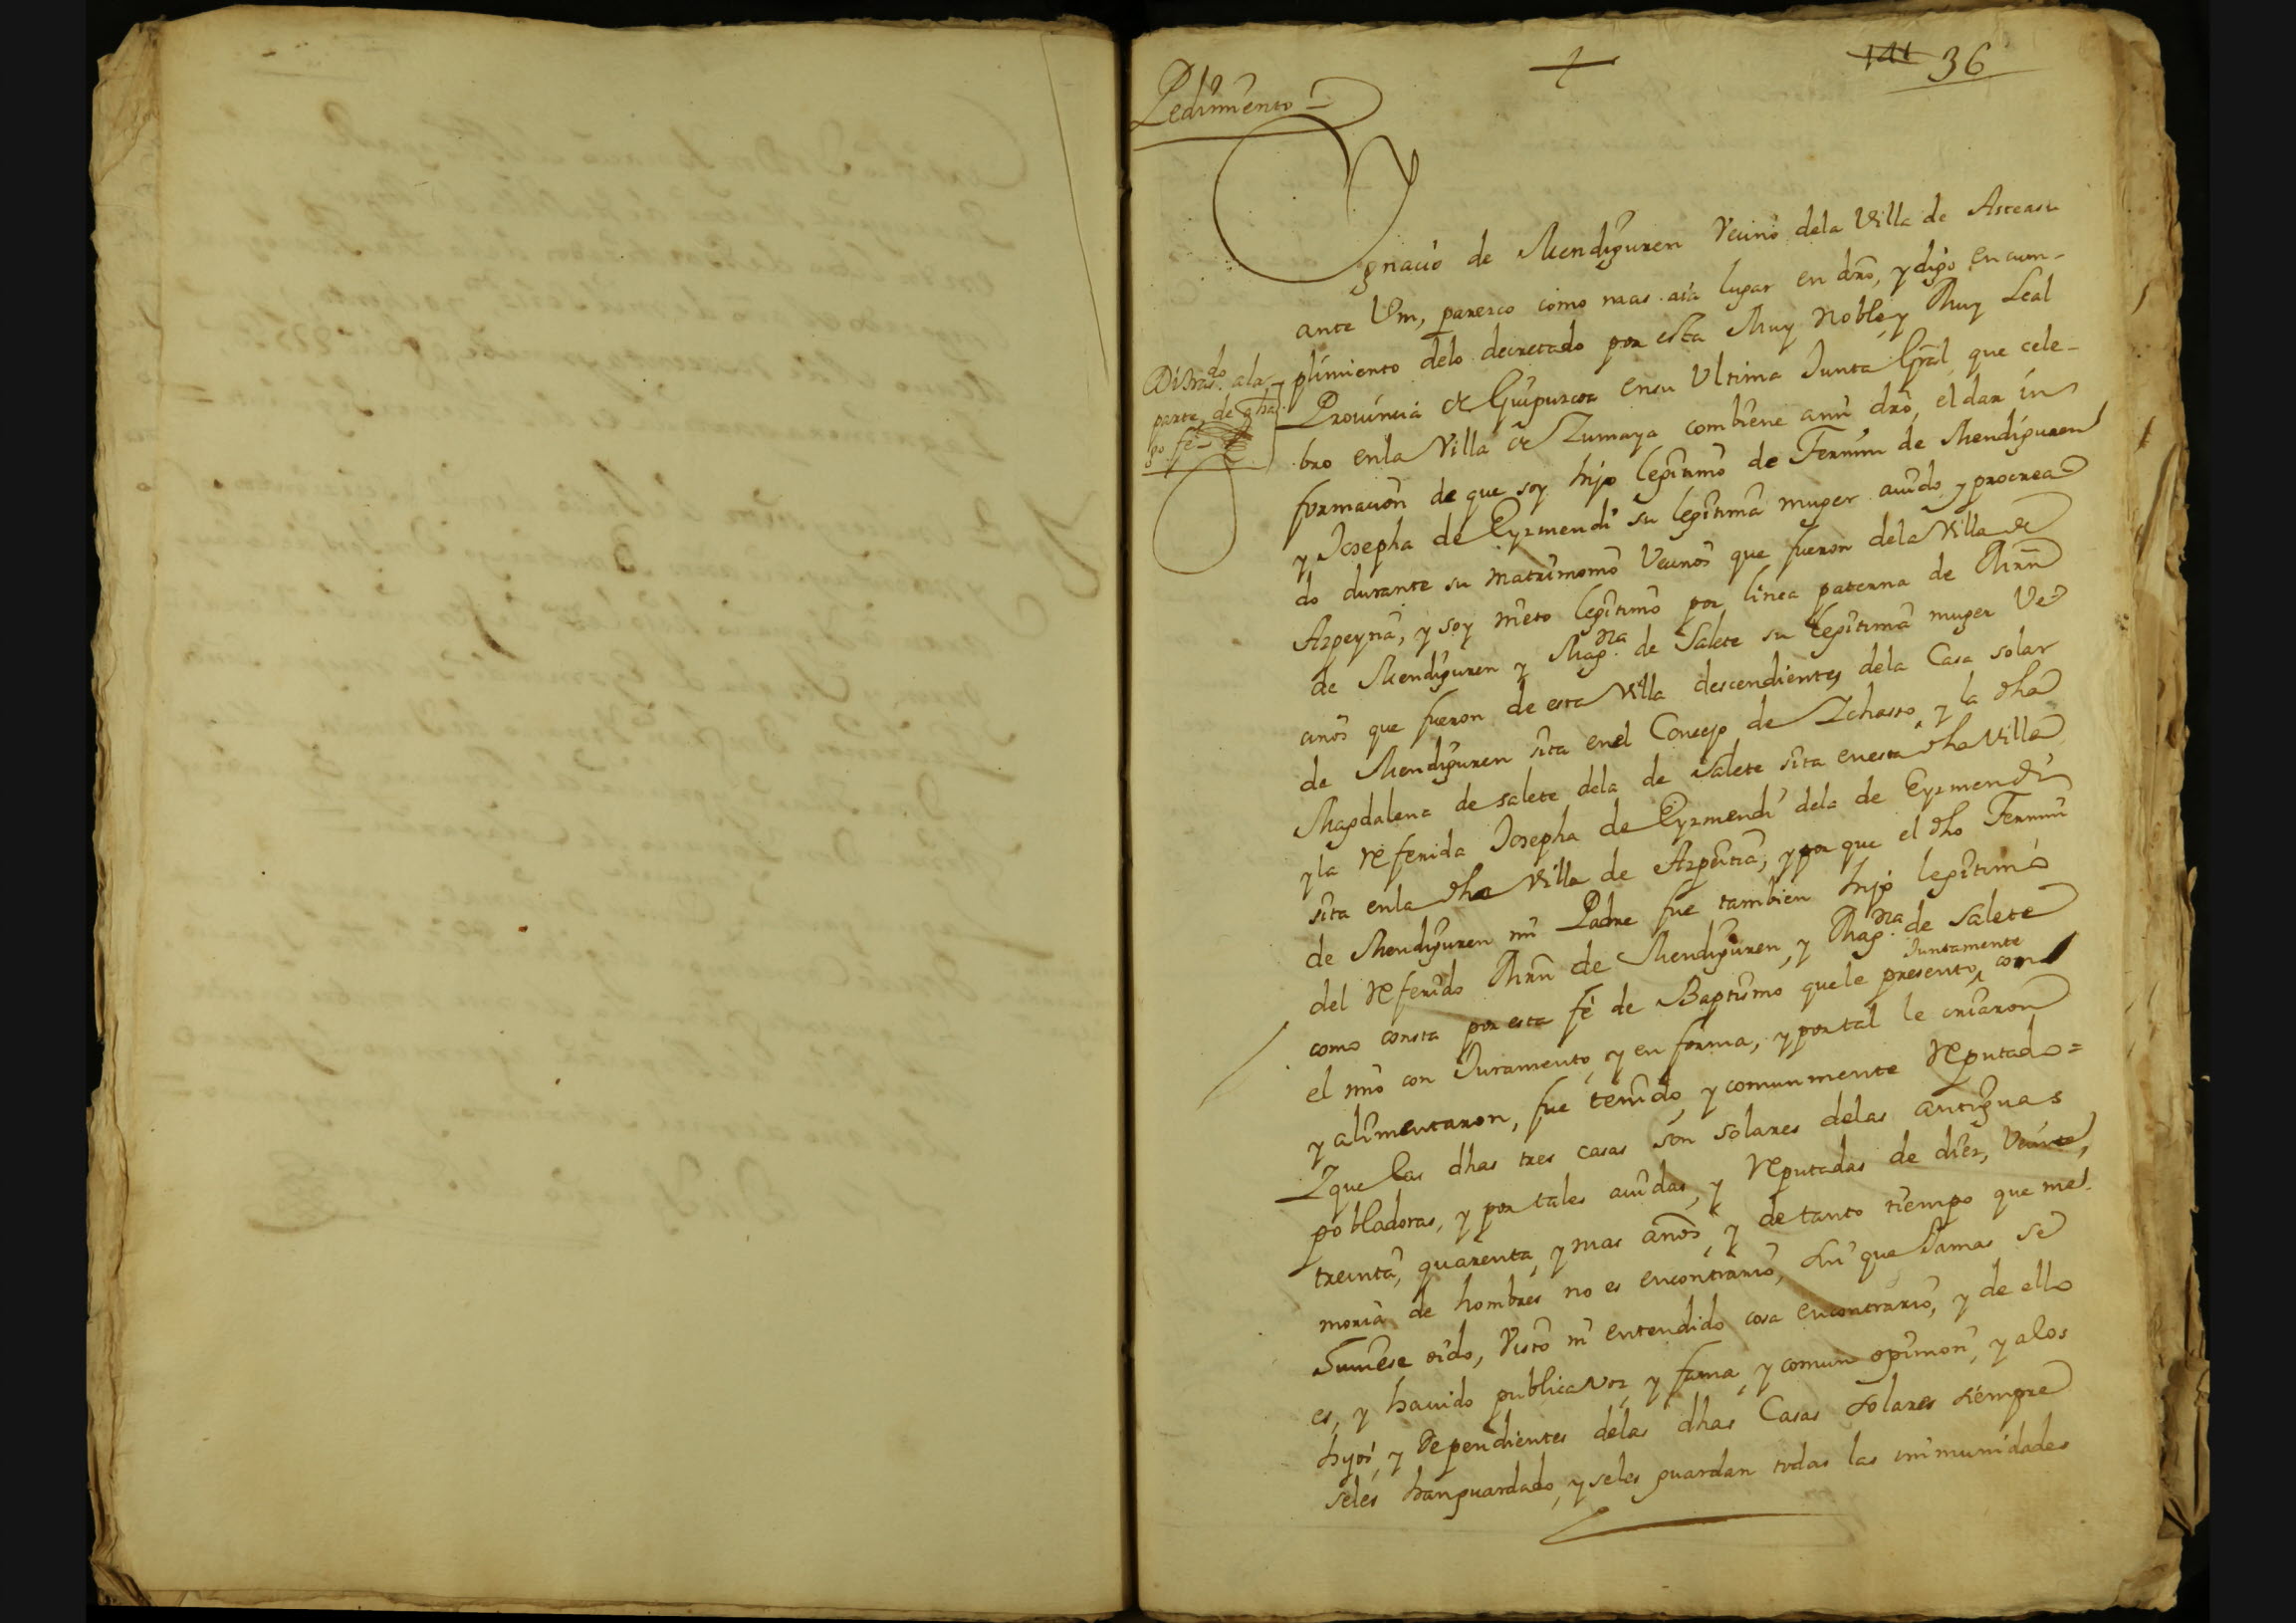 141 36
Pedimiento
Ygnacio de Mendiguren Vecino dela Villa de Asteasu
ante Vm, parezco como maas aia lugar en dro, y digo en cum-
plimiento delo decretado por esta Muy Noble y Muy Leal
Provincia de Guipuzcoa ensu Ultima Junta Gral que cele-
bro enla Villa de Zumaya combiene ami dro, el dar in
formacion de que soy hijo legitimo de Fermin de Mendiguren
y Josepha de Eyzmendi su legitima muger auido y procrea
do durante su matrimonio Vecinos que fueron dela Villa de
Azpeytia, y soy nieto legitimo por linea paterna de Mrn
de Mendiguren y Magna. de Salete su legitima muger Ve
cinos que fueron de esta Villa descendientes dela Casa solar
de Mendiguren sita enel Concejo de Ichasso, y la dha
Magdalena de salete dela de Salete sita enesta dha Villa
y la referida Josepha de Eyzmendi dela de Eyzmendi
sita enla dha Villa de Azpeitia, y por que el dho Fermin
de Mendiguren mi Padre fue tambien hijo legitimo
del referido Mrn de Mendiguren, y Magna. de Salete
como consta por esta fé de Baptismo quele presento Juntamente con
el mio con Juramento, y en forma, y por tal le criaron
y alimentaron, fue tenido, y comunmente reputado=
Y que las dhas tres casas son solares delas antiguas
pobladoras, y por tales auidas, y reputadas de diez, veinte,
treinta, quarenta, y mas años, y de tanto tiempo que me
moria de hombres no es encontrario, sin que Jamas se
huuiese oido, visto ni entendido cosa encontrario, y de ello
es, y hauido publica voz, y fama, y comun opinion, y alos
hijos, y Dependientes delas dhas Casas solares siempre
seles hanguardado, y seles guardan todas las inmunidades
Di trasdo. ala
parte, de q ha
go fé